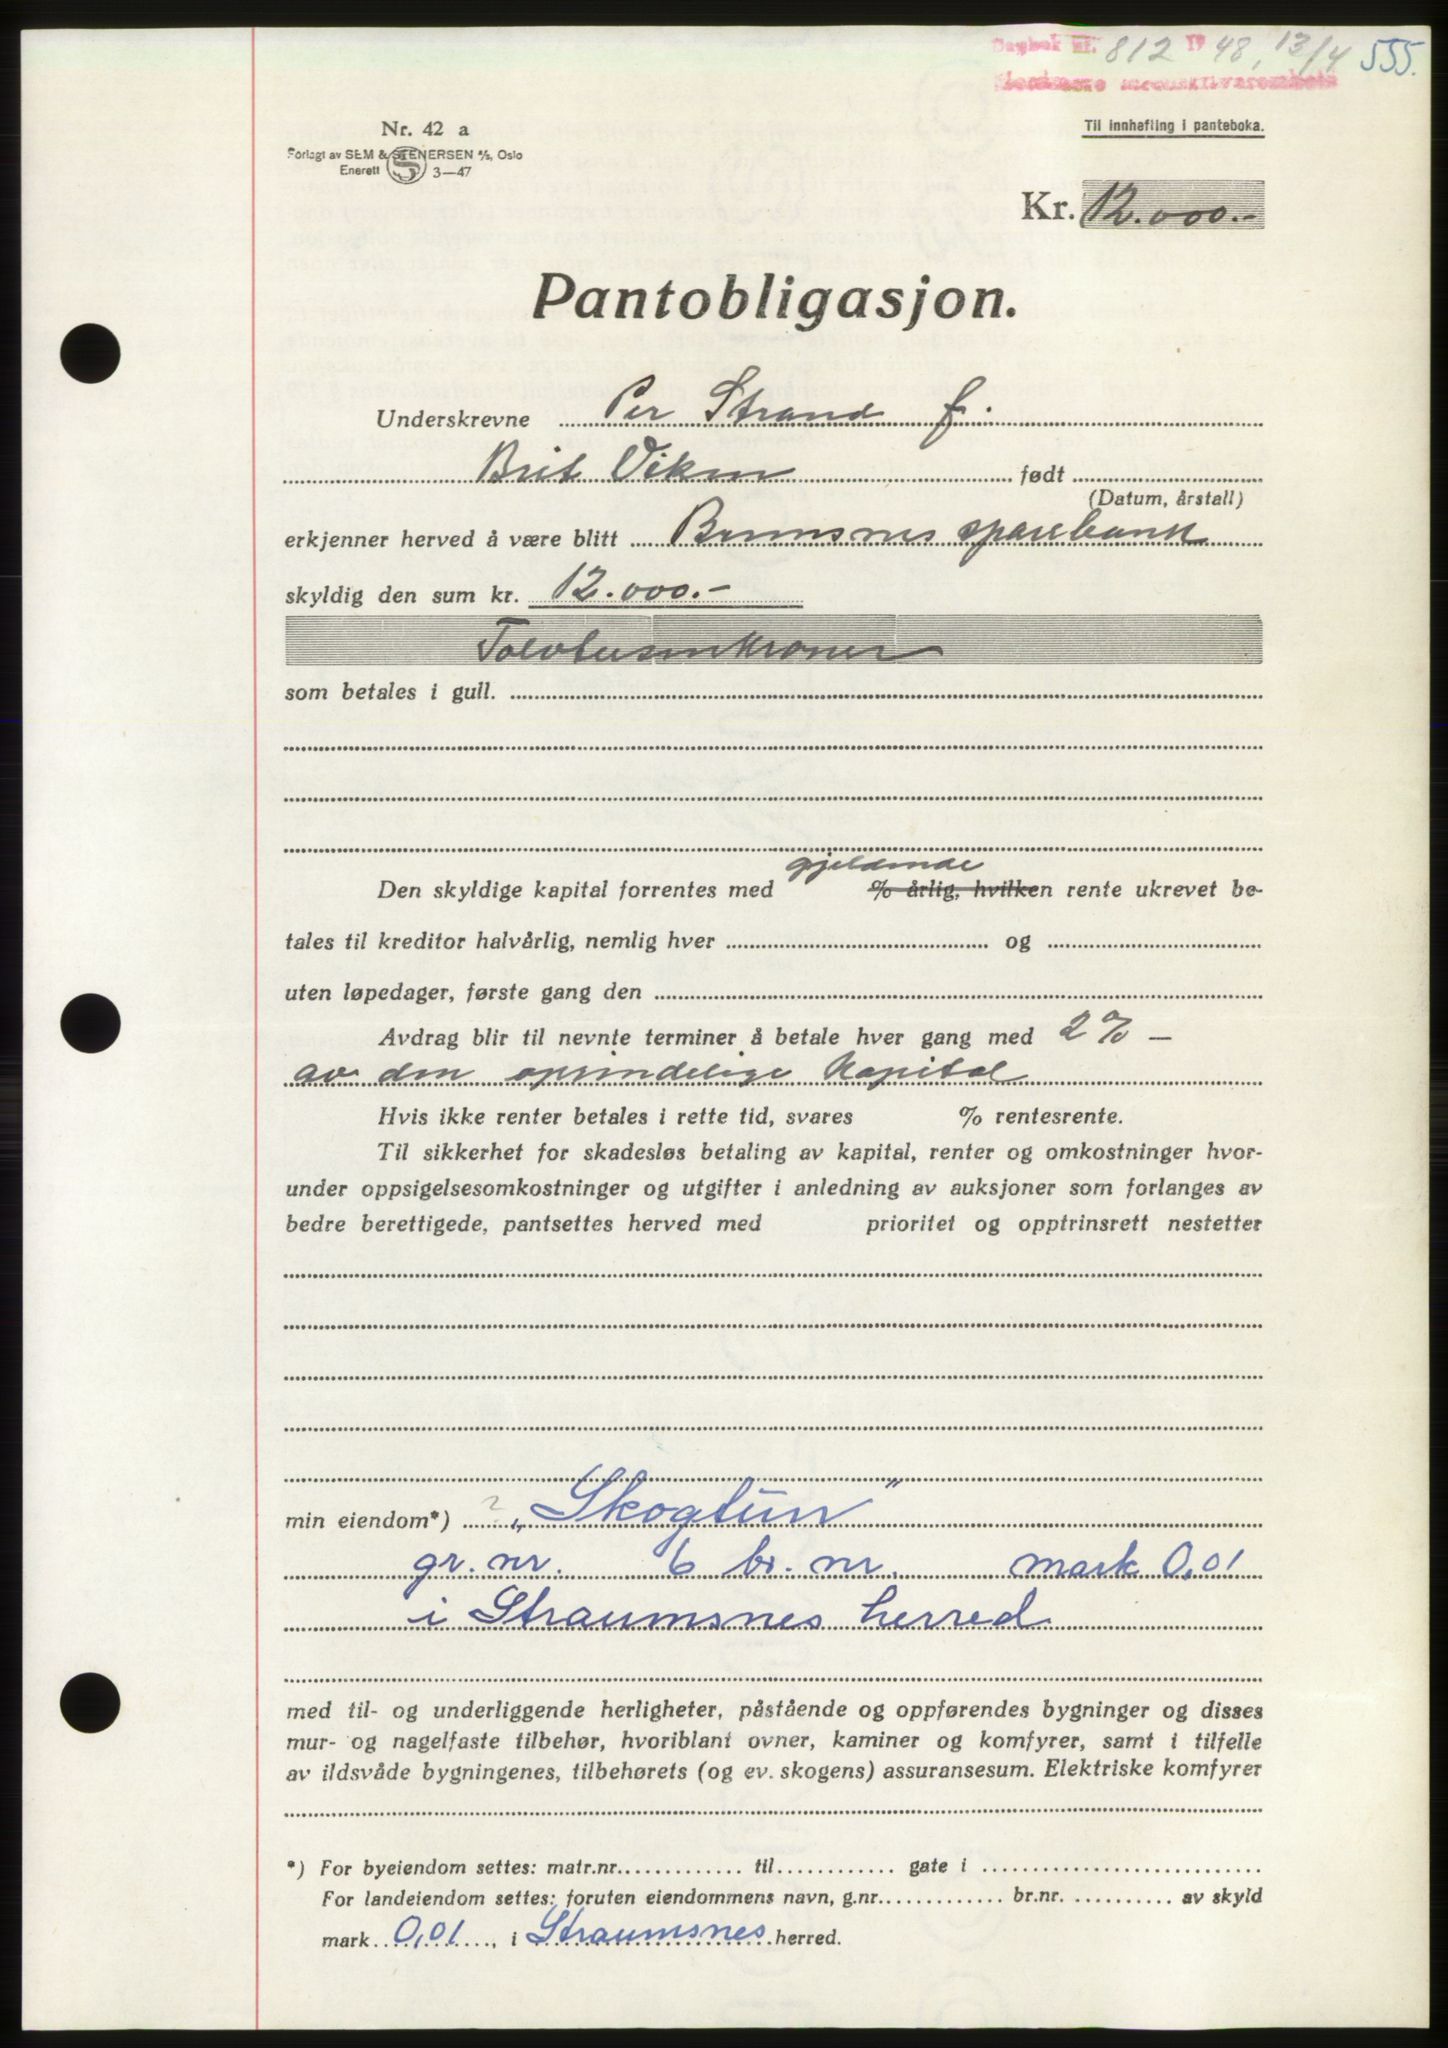 Dagbok nr. 812 1948, 13/4 555.
Nordmøre sorenskriverembete
Nr. 42 a
Til innhefting i panteboka.
Forlagt av SEM & STENERSEN A/S, Oslo
Enerett 3—47
Kr. 12.000.-
Pantobligasjon.
Underskrevne Per Strand f.
Brit Viken født
(Datum, årstall)
erkjenner herved å være blitt Bremsnes sparebank
skyldig den sum kr. 12.000.-
Tolvtusenkroner
som betales i gull.
gjeldende
Den skyldige kapital forrentes med % årlig, hvilken rente ukrevet be-
tales til kreditor halvårlig, nemlig hver og
uten løpedager, første gang den
Avdrag blir til nevnte terminer å betale hver gang med 2% —
av den oprindelige kapital
Hvis ikke renter betales i rette tid, svares % rentesrente.
Til sikkerhet for skadesløs betaling av kapital, renter og omkostninger hvor-
under oppsigelsesomkostninger og utgifter i anledning av auksjoner som forlanges av
bedre berettigede, pantsettes herved med prioritet og opptrinsrett nestetter
min eiendom*) ? „Skogtun"
gr. nr. 6 br. nr. mark 0,01
i Straumsnes herred
med til- og underliggende herligheter, påstående og oppførendes bygninger og disses
mur- og nagelfaste tilbehør, hvoriblant ovner, kaminer og komfyrer, samt i tilfelle
av ildsvåde bygningenes, tilbehørets (og ev. skogens) assuransesum. Elektriske komfyrer
*) For byeiendom settes: matr.nr. til gate i
For landeiendom settes: foruten eiendommens navn, g.nr. br.nr. av skyld
mark 0,01, i Straumsnes herred.